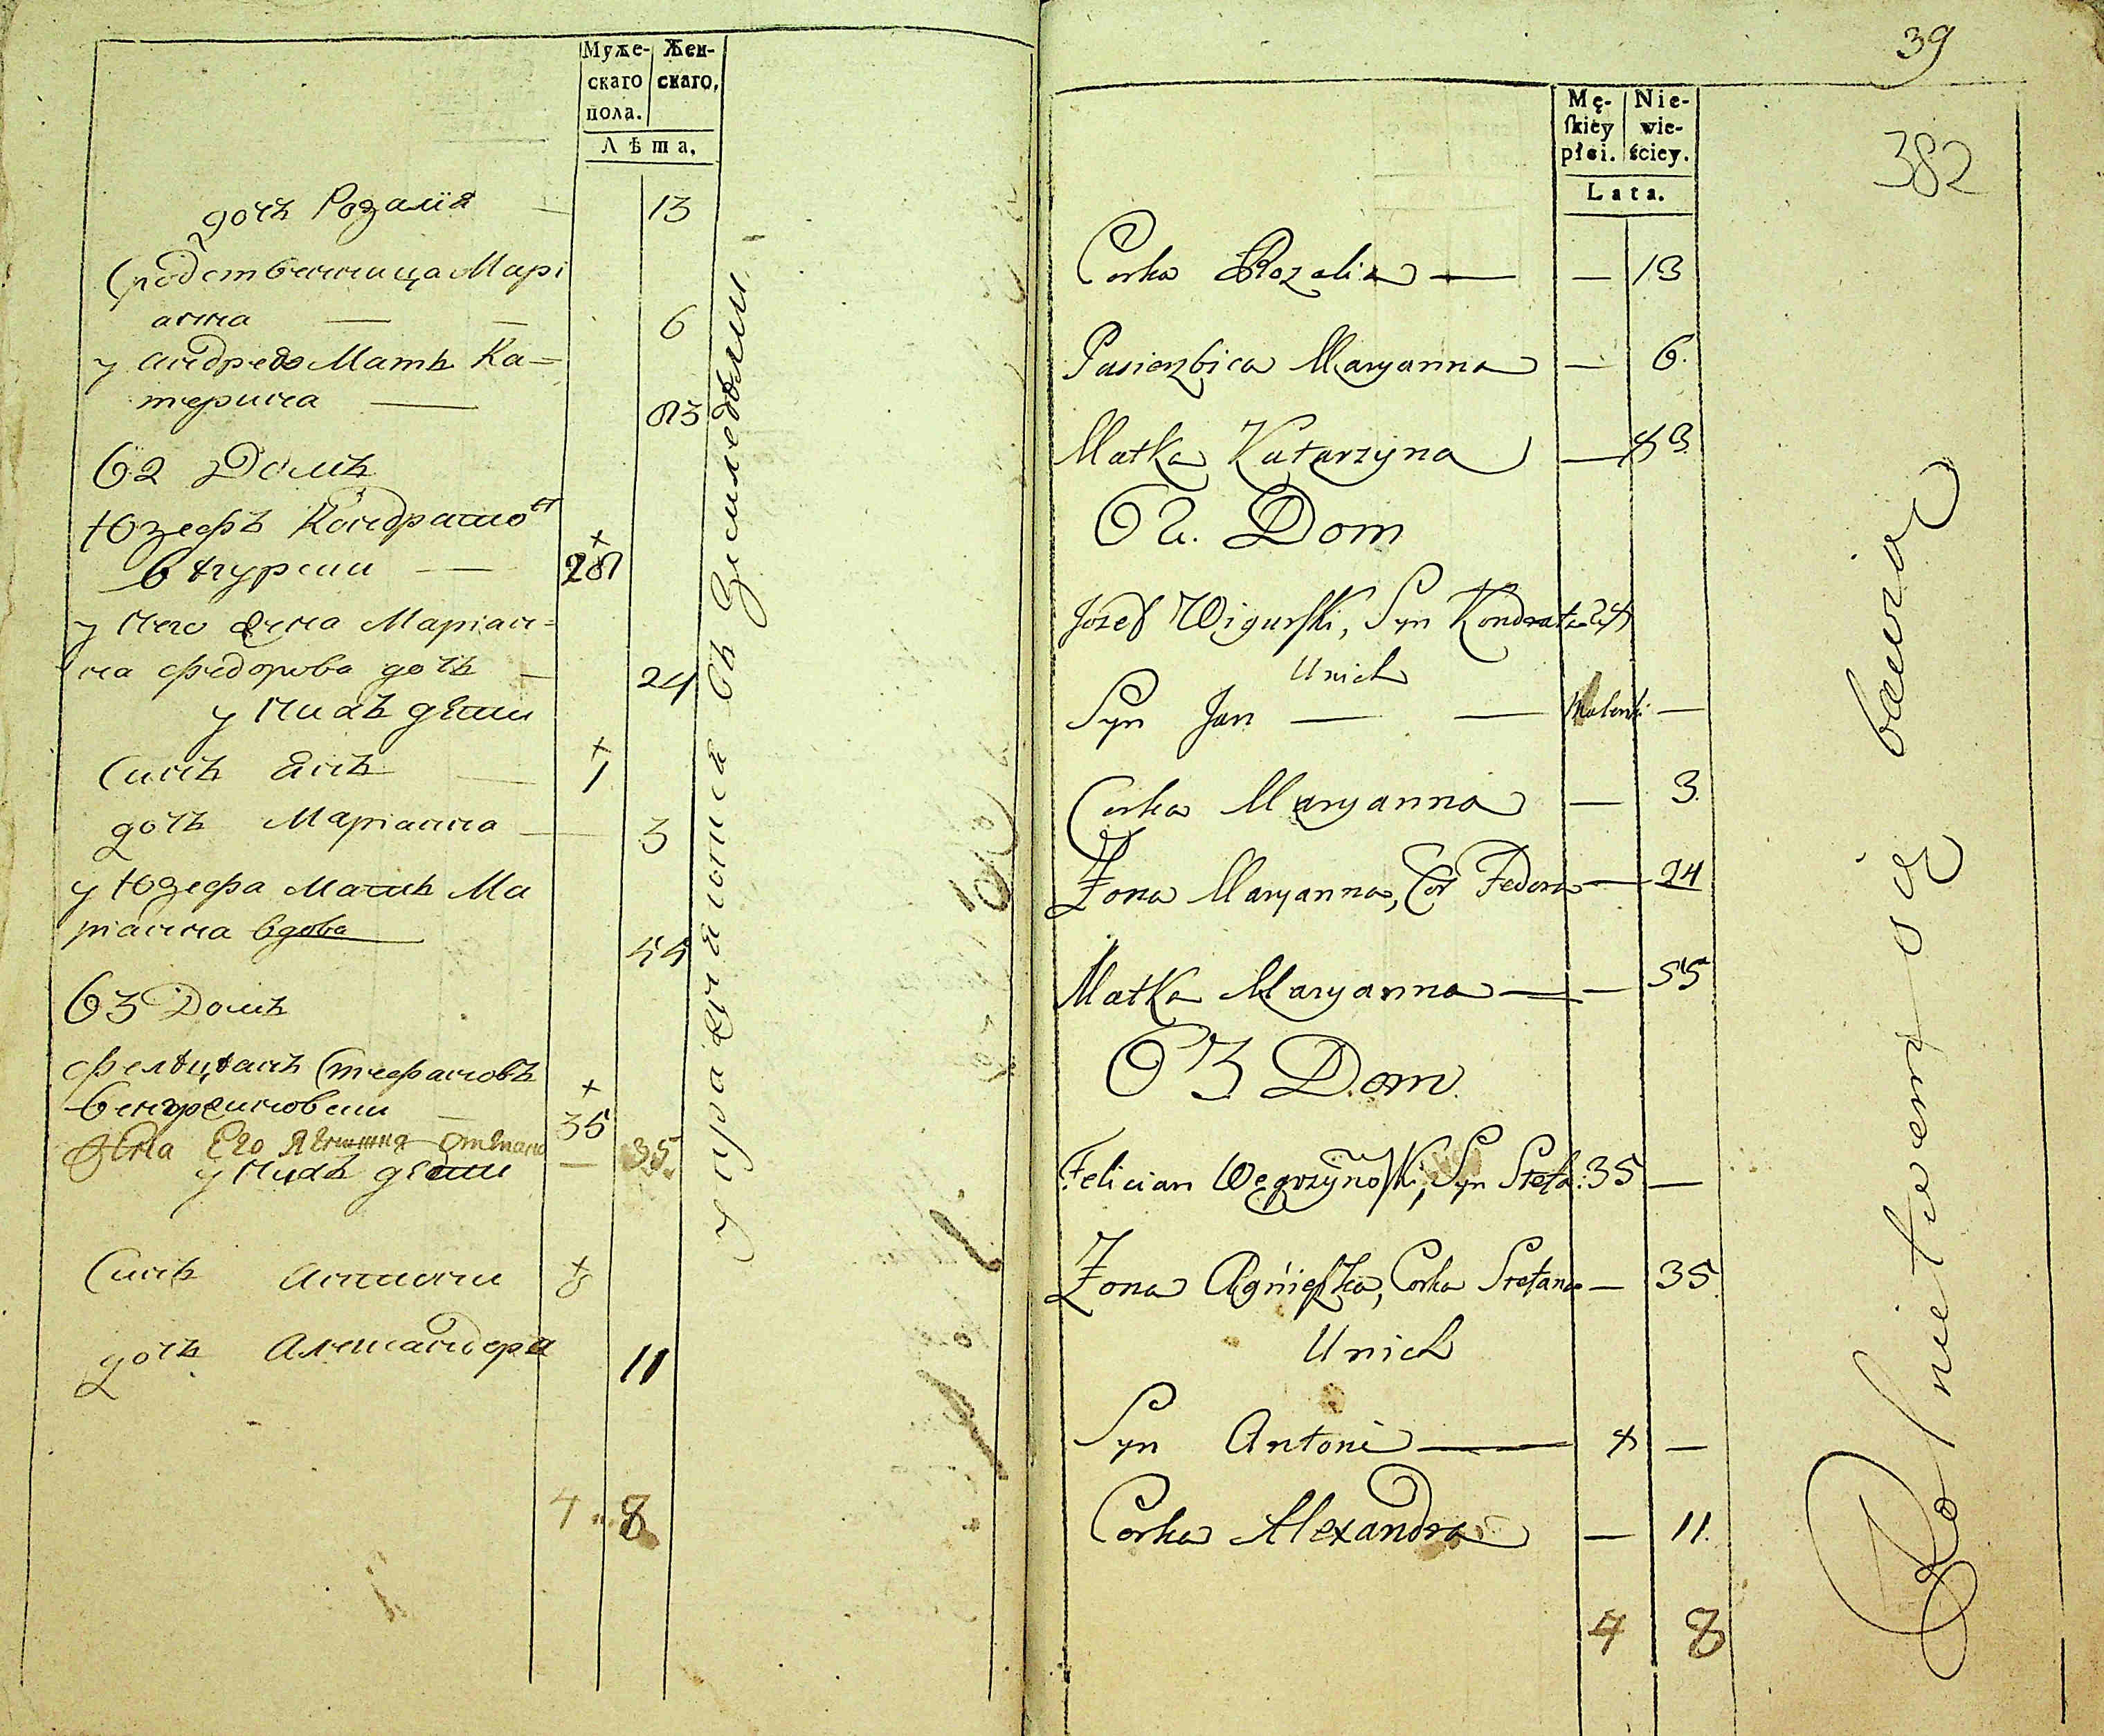 Муже-
скаго
пола.
Жен-
скаго,
Лѣта,
дочь Розалія — 13
Сродственница Марі
анна — — 6
у Андрея Мать Ка=
терина — 83
62 Домъ
Юзефъ Кондратов
28
у него жена Маріан=
на Федорова дочь — 24
у нихъ дѣти
Сынъ Янъ — 1
дочь Маріанна — 3
у Юзефа Мать Ма
ріанна вдова
55
63 Домъ
Фелиціанъ Стефановъ
35
Жена Его 35
у нихъ дѣти
Сынъ Антони 8
дочь Александра 11
4 8
упражняются въ земледѣли
39
382
Mę-
ſkiey
płci.
Nie-
wie-
ściey.
Lata.
Corka Rozalia — — 13
Pasierzbica Maryanna — 6.
Matka Katarzyna — 83
62. Dom
Jozef Wigurſki, Syn Kondrata 28
Unich
Syn Jan — — Malenki —
Corka Maryanna — 3.
Żona Maryanna, Cor Fedora — 24
Matka Maryanna — — 55
63 Dom.
Felician Węgrzynoſki, Syn Stefa: 35 —
Żona Agnieſzka, Corka Stefana — 35.
Unich
Syn Antoni — 8 —
Corka Alexandra — 11.
4 8
Rolnictwem się bawią